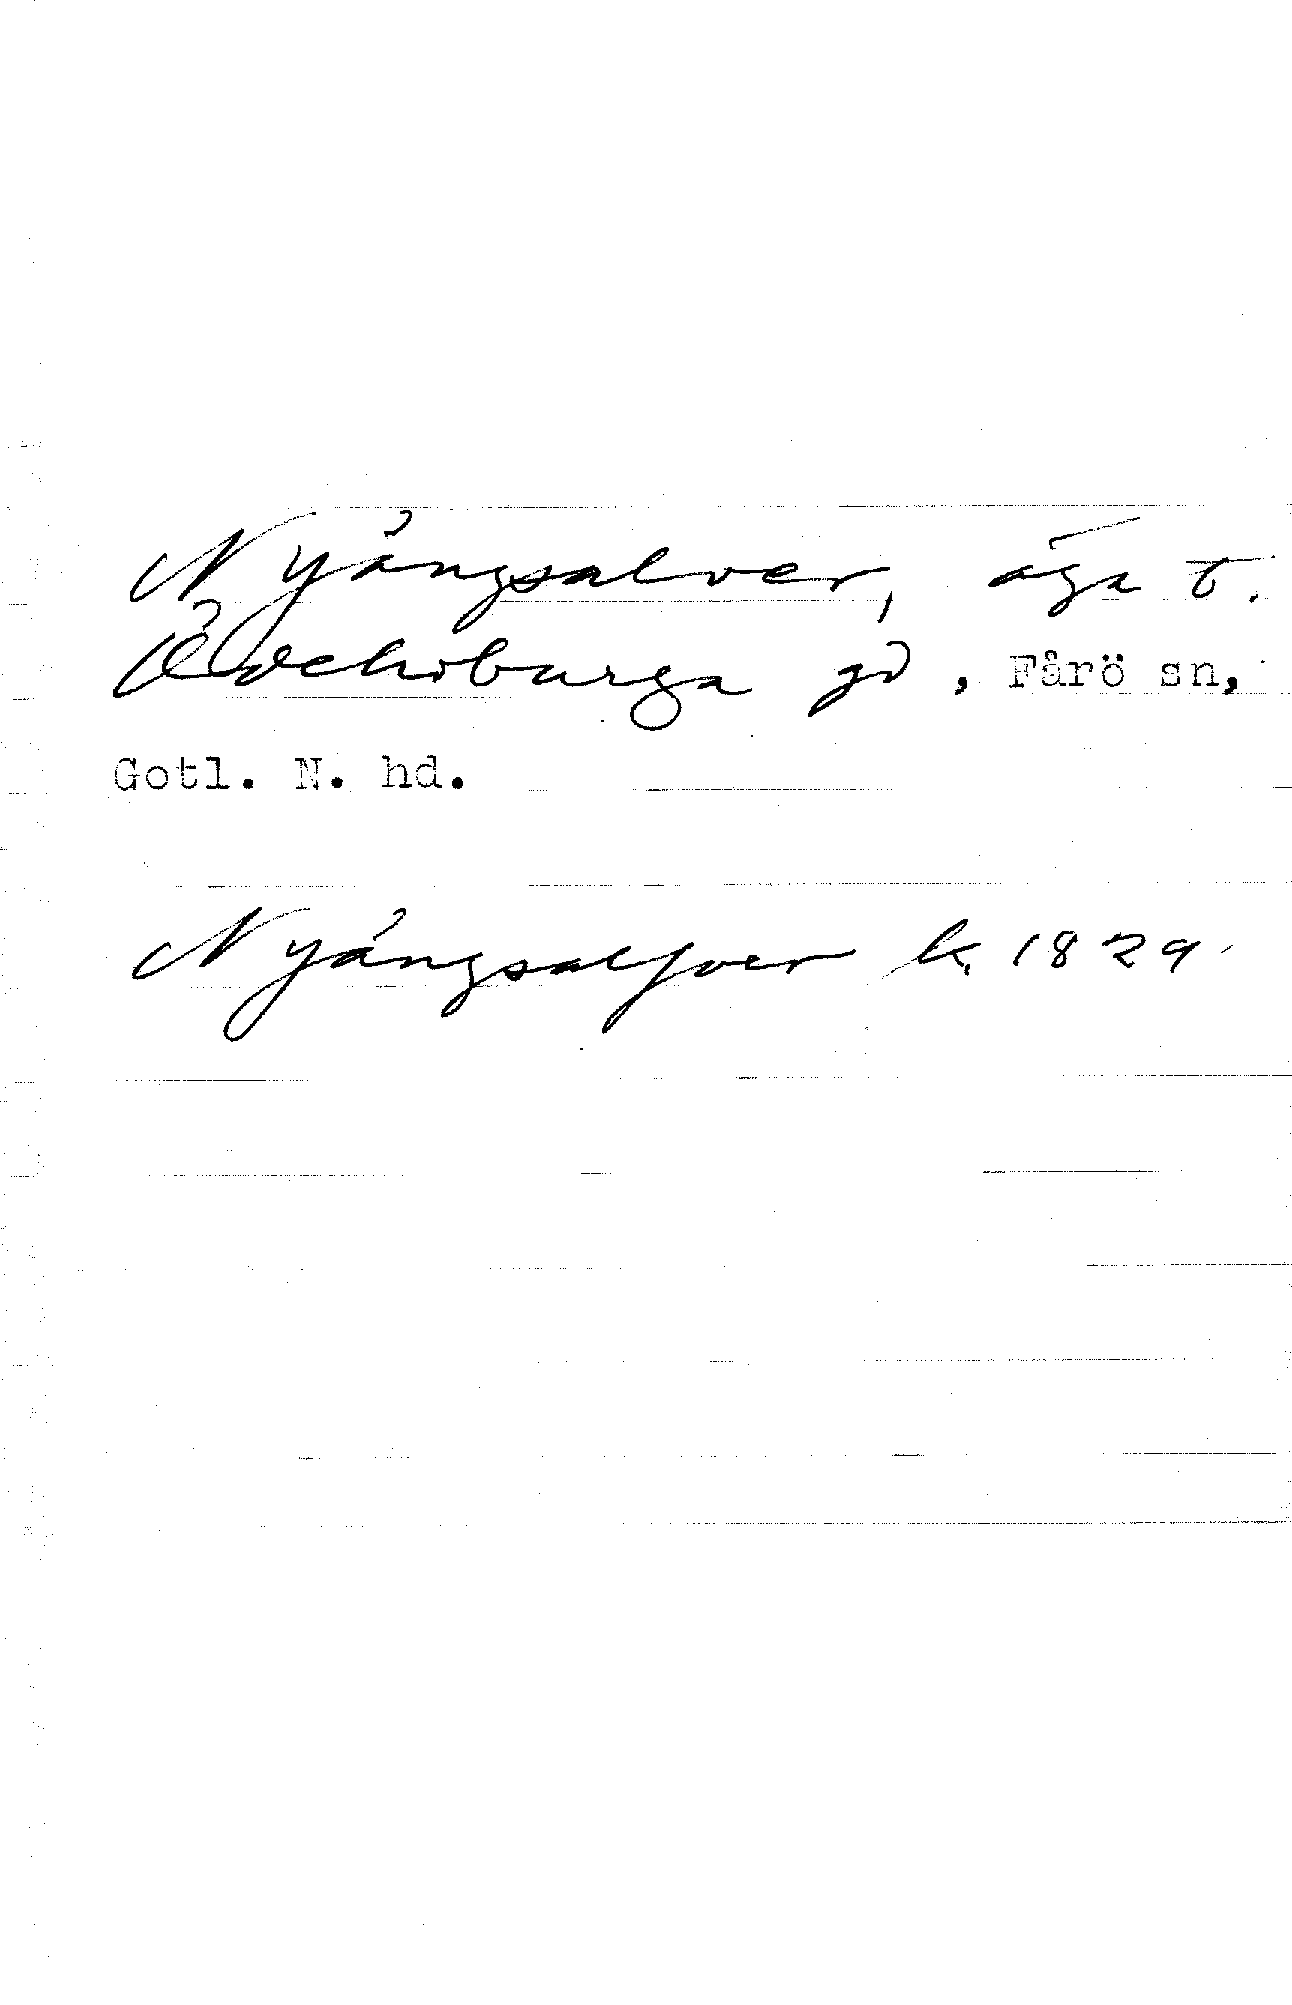 Nyängsalver, äga t.
Ödehoburga gd, Fårö sn,
Gotl. N. hd.
Nyängsalfver k. 1829